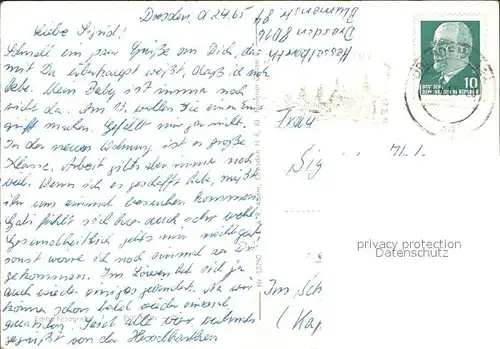 Dresden, d. 24.6.65
Liebe Sigrid!
Schnell ein paar Grüße an Dich, da-
mit Du überhaupt weißt, daß ich noch
lebe. Mein Baby ist immer noch
nicht da. Am 1. wollen sie einen Ein-
griff machen. Gefällt mir gar nicht.
In der neuen Wohnung ist es große
Klasse. Arbeit gibts aber immer noch
viel. Wenn ich es geschafft habe, müßt
ihr uns einmal besuchen kommen.
Gabi fühlt sich hier auch sehr wohl
Gesundheitlich gehts mir nicht gut
sonst wäre ich noch einmal zu Dir
gekommen. Im Löwen hat sich ja
auch wieder einiges geändert. Na wir
können schon bald wieder einmal
Seid alle
gegrüßt von der Hesselbarthen
Hesselbarth
Dresden 8016
Blumenstr. 84
DRESDEN
10
DEUTSCHE
DEMOKRATISCHE REPUBLIK
Frau
Sig
Im Sch
(Ka
privacy protection
Datenschutz